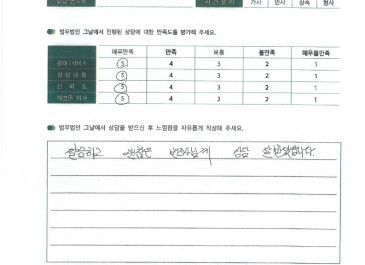 가사 민사 상속 형사
법무법인 그날에서 진행된 상담에 대한 만족도를 평가해 주세요.
매우만족 만족 보통 불만족 매우불만족
5 4 3 2 1
상담내용 5 4 3 2 1
신뢰도 5 4 3 2 1
5 4 3 2 1
법무법인 그날에서 상담을 받으신 후 느낌점을 자유롭게 작성해 주세요.
꼼꼼하고 변호사님께 상담 잘 받았습니다.